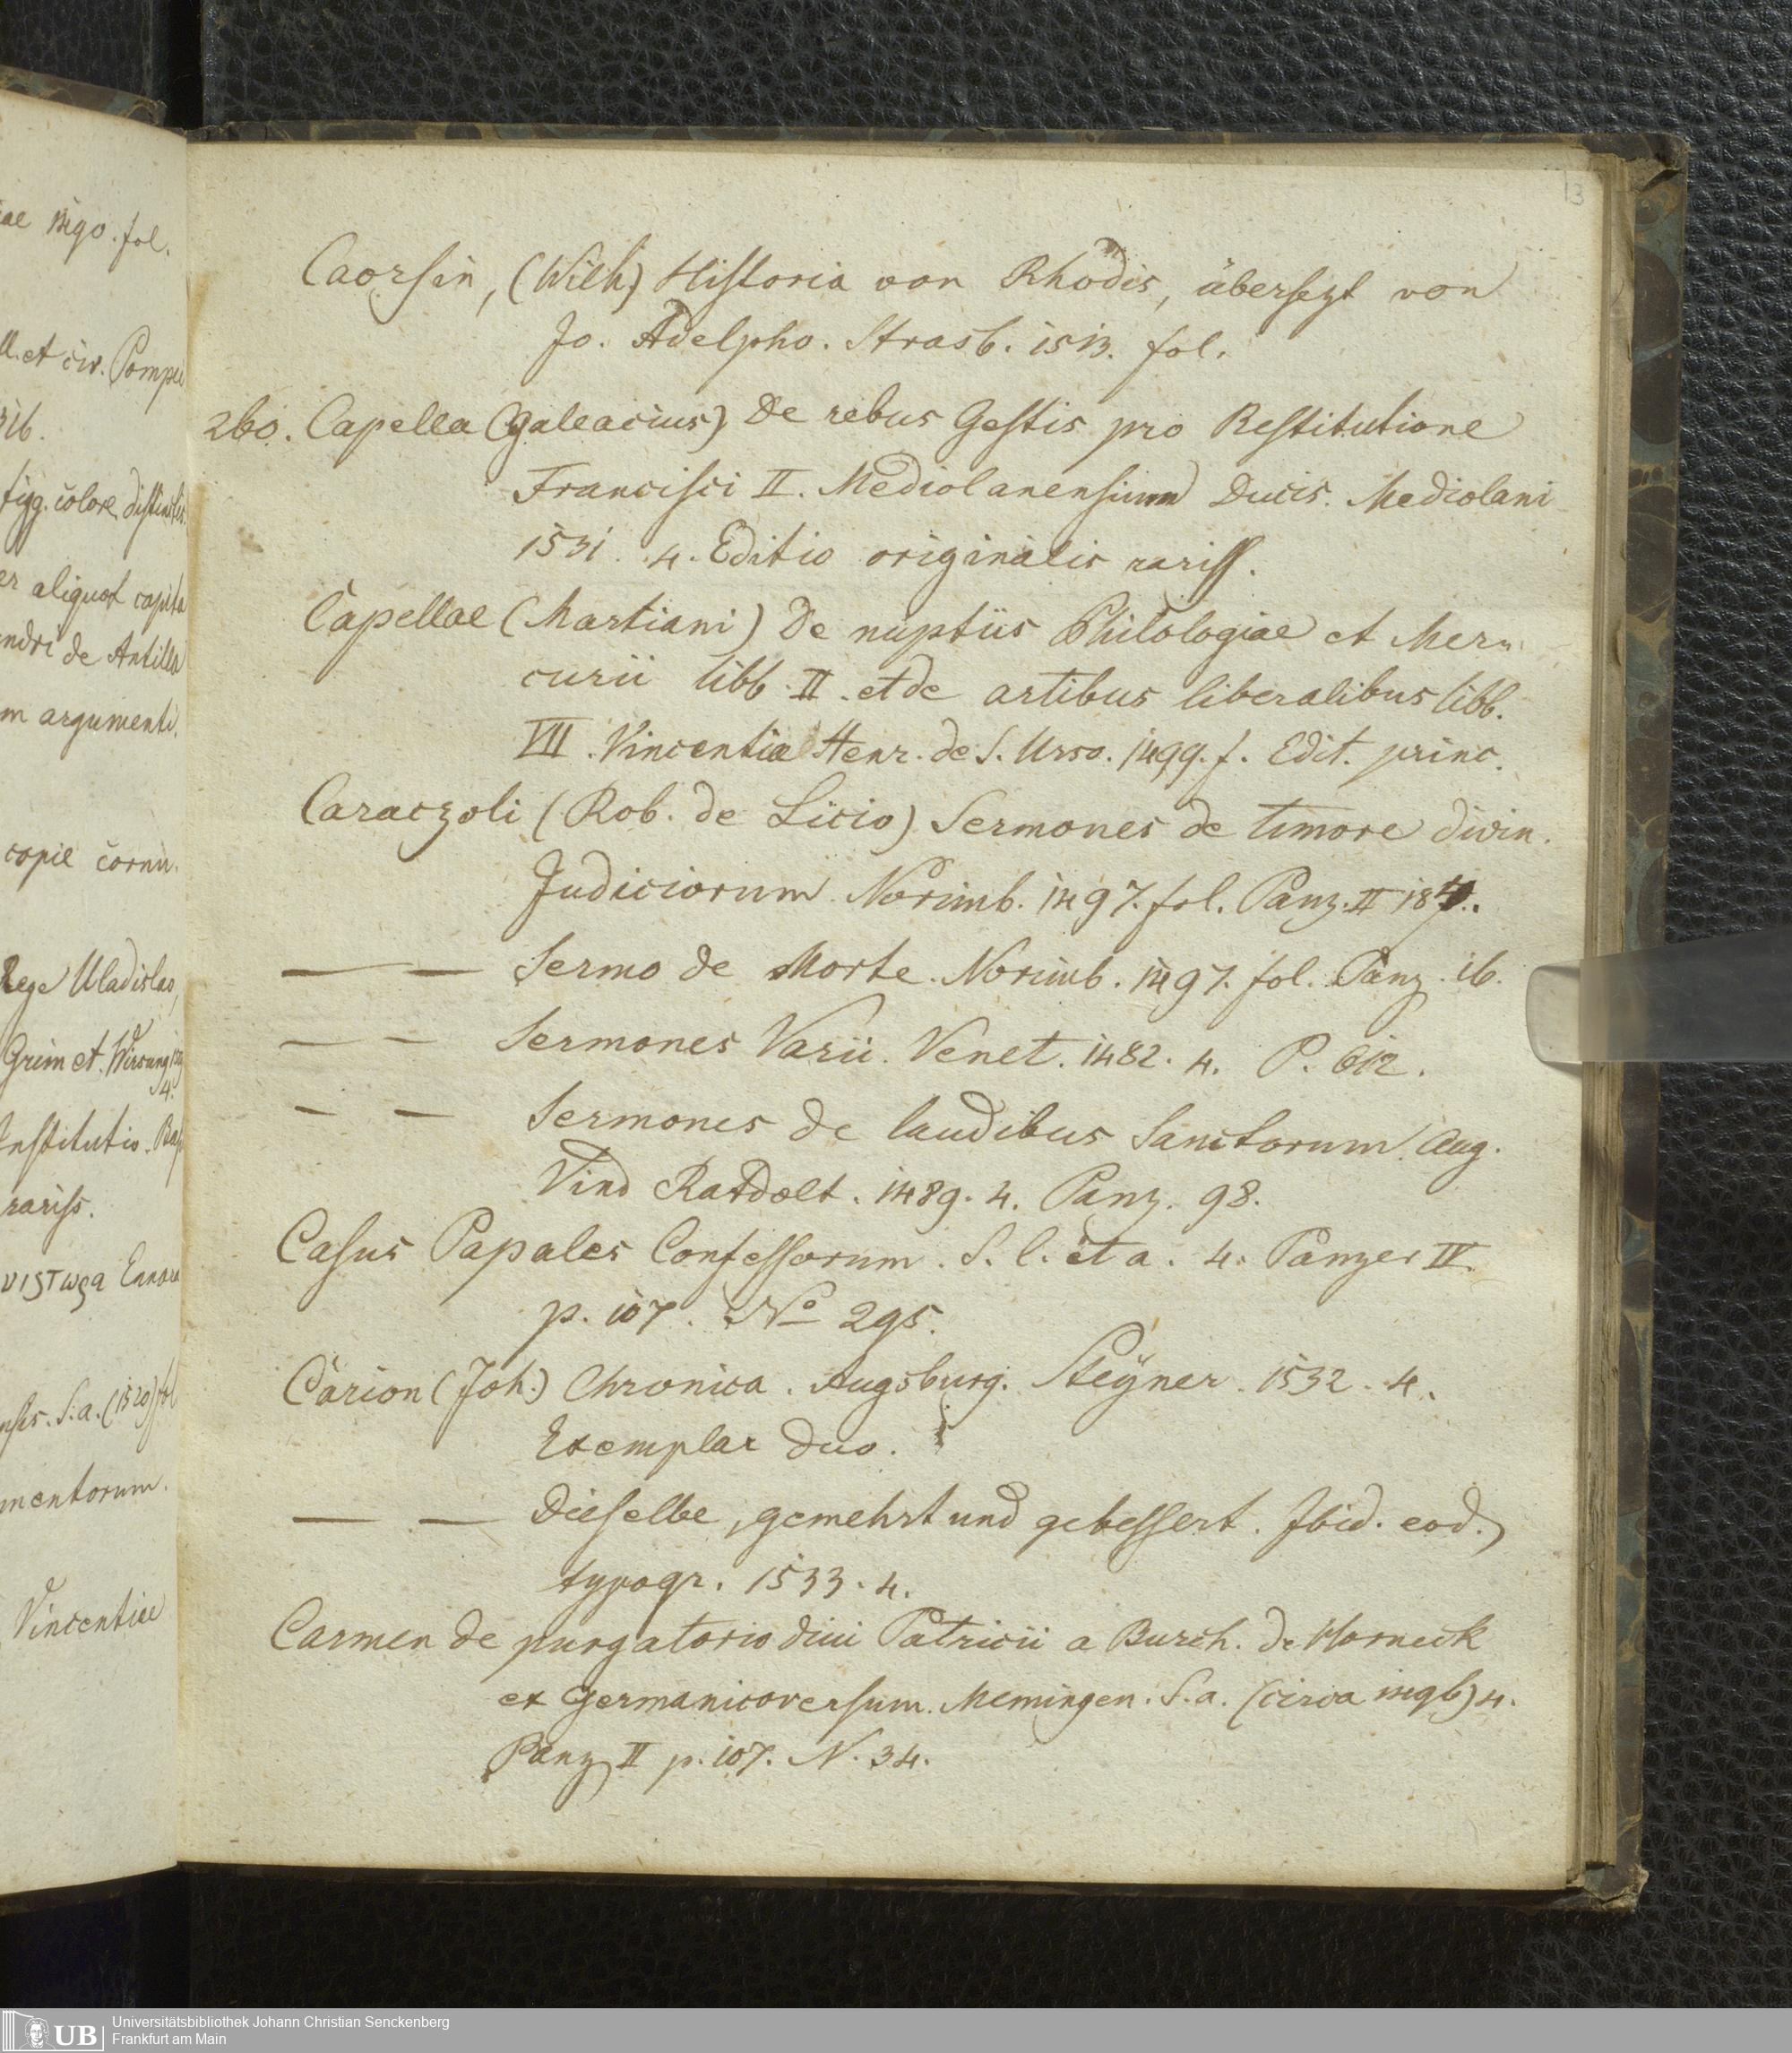 iae 1490. fol.
ll. et civ. Pompei
ib.
figg. colore distinctis
er aliquot capita
ndri de Antilla
m argumenti.
copie cornu.
Rege Uladislao,
Grim et. Wirsung
4.
Institutio. Bas
rariss.
s. S. a. (1520) fol
mentorum.
Vincentiae
13
Caorsin, (Wilh) Historia von Rhodis, übersezt von
Jo. Adelpho. Strasb. 1513. fol.
260. Capella (galeacius) De rebus Gestis pro Restitutione
Francisci II. Mediolanensium Ducis. Mediolani
1531. 4. Editio originalis rariss.
Capellae (Martiani) De nuptiis Philologiae et Mer„
curii libb. II. et de artibus liberalibus libb.
VII. Vincentiae Henr. de S. Urso. 1499. f. Edit. princ.
Caraczoli (Rob. de Licio) Sermones de timore divin.
Judiciorum. Norimb. 1497. fol. Panz. II
— — Sermo de Morte. Norimb. 1497. fol. Panz. ib.
— — Sermones Varii. Venet. 1482. 4. P. 612.
— — Sermones de laudibus Sanctorum. Aug.
Vind Ratdolt. 1489. 4. Panz. 98.
Casus Papales Confessorum. S. l. et a. 4. Panzer IV.
p. 107. No 295.
Carion (Joh.) Chronica. Augsburg. Steÿner. 1532. 4.
Exemplar duo.
— — Dieselbe, gemehrt und gebessert. Ibid. eod.
typogr. 1533. 4.
Carmen de purgatorio divi Patricii a Burch. de Horneck
ex germanico versum. Memingen. S. a. (circa 1496) 4.
Panz II p. 107. N. 34.
UB
Universitätsbibliothek Johann Christian Senckenberg
Frankfurt am Main